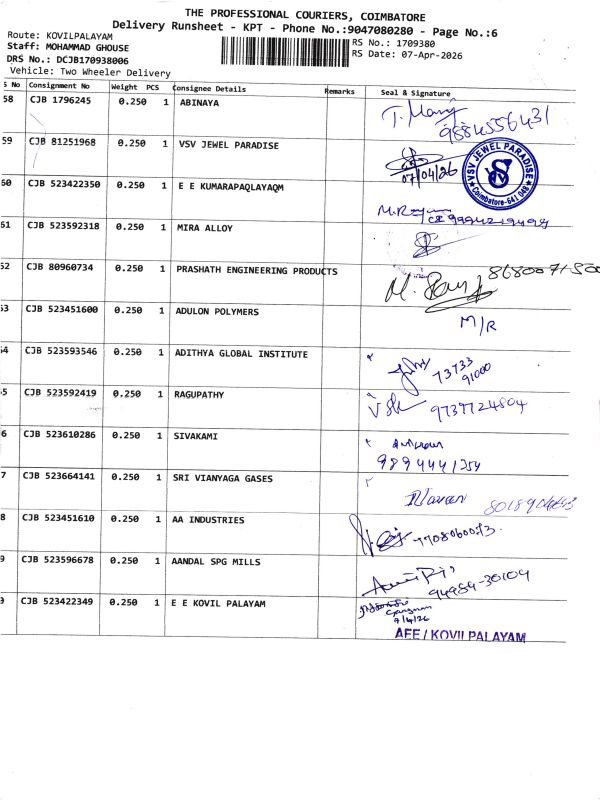 THE PROFESSIONAL COURIERS, COIMBATORE
Delivery Runsheet - KPT - Phone No.:9047080280 - Page No.:6
Route: KOVILPALAYAM
Staff: MOHAMMAD GHOUSE
RS No.: 1709380
DRS No.: DCJB170938006
RS Date: 07-Apr-2026
Vehicle: Two Wheeler Delivery
S No Consignment No Weight PCS Consignee Details Remarks Seal & Signature
58 CJB 1796245 0.250 1 ABINAYA
9884556431
59 CJB 81251968 0.250 1 VSV JEWEL PARADISE
07/04/26
VSV JEWEL PARADISE
Coimbatore-641 048
60 CJB 523422350 0.250 1 E E KUMARAPAQLAYAQM
61 CJB 523592318 0.250 1 MIRA ALLOY
52 CJB 80960734 0.250 1 PRASHATH ENGINEERING PRODUCTS
53 CJB 523451600 0.250 1 ADULON POLYMERS
M/R
54 CJB 523593546 0.250 1 ADITHYA GLOBAL INSTITUTE
73733
91000
5 CJB 523592419 0.250 1 RAGUPATHY
9739724804
6 CJB 523610286 0.250 1 SIVAKAMI
9894441254
7 CJB 523664141 0.250 1 SRI VIANYAGA GASES
8 CJB 523451610 0.250 1 AA INDUSTRIES
9 CJB 523596678 0.250 1 AANDAL SPG MILLS
94984-30104
CJB 523422349 0.250 1 E E KOVIL PALAYAM
7/4/26
AEE / KOVILPALAYAM